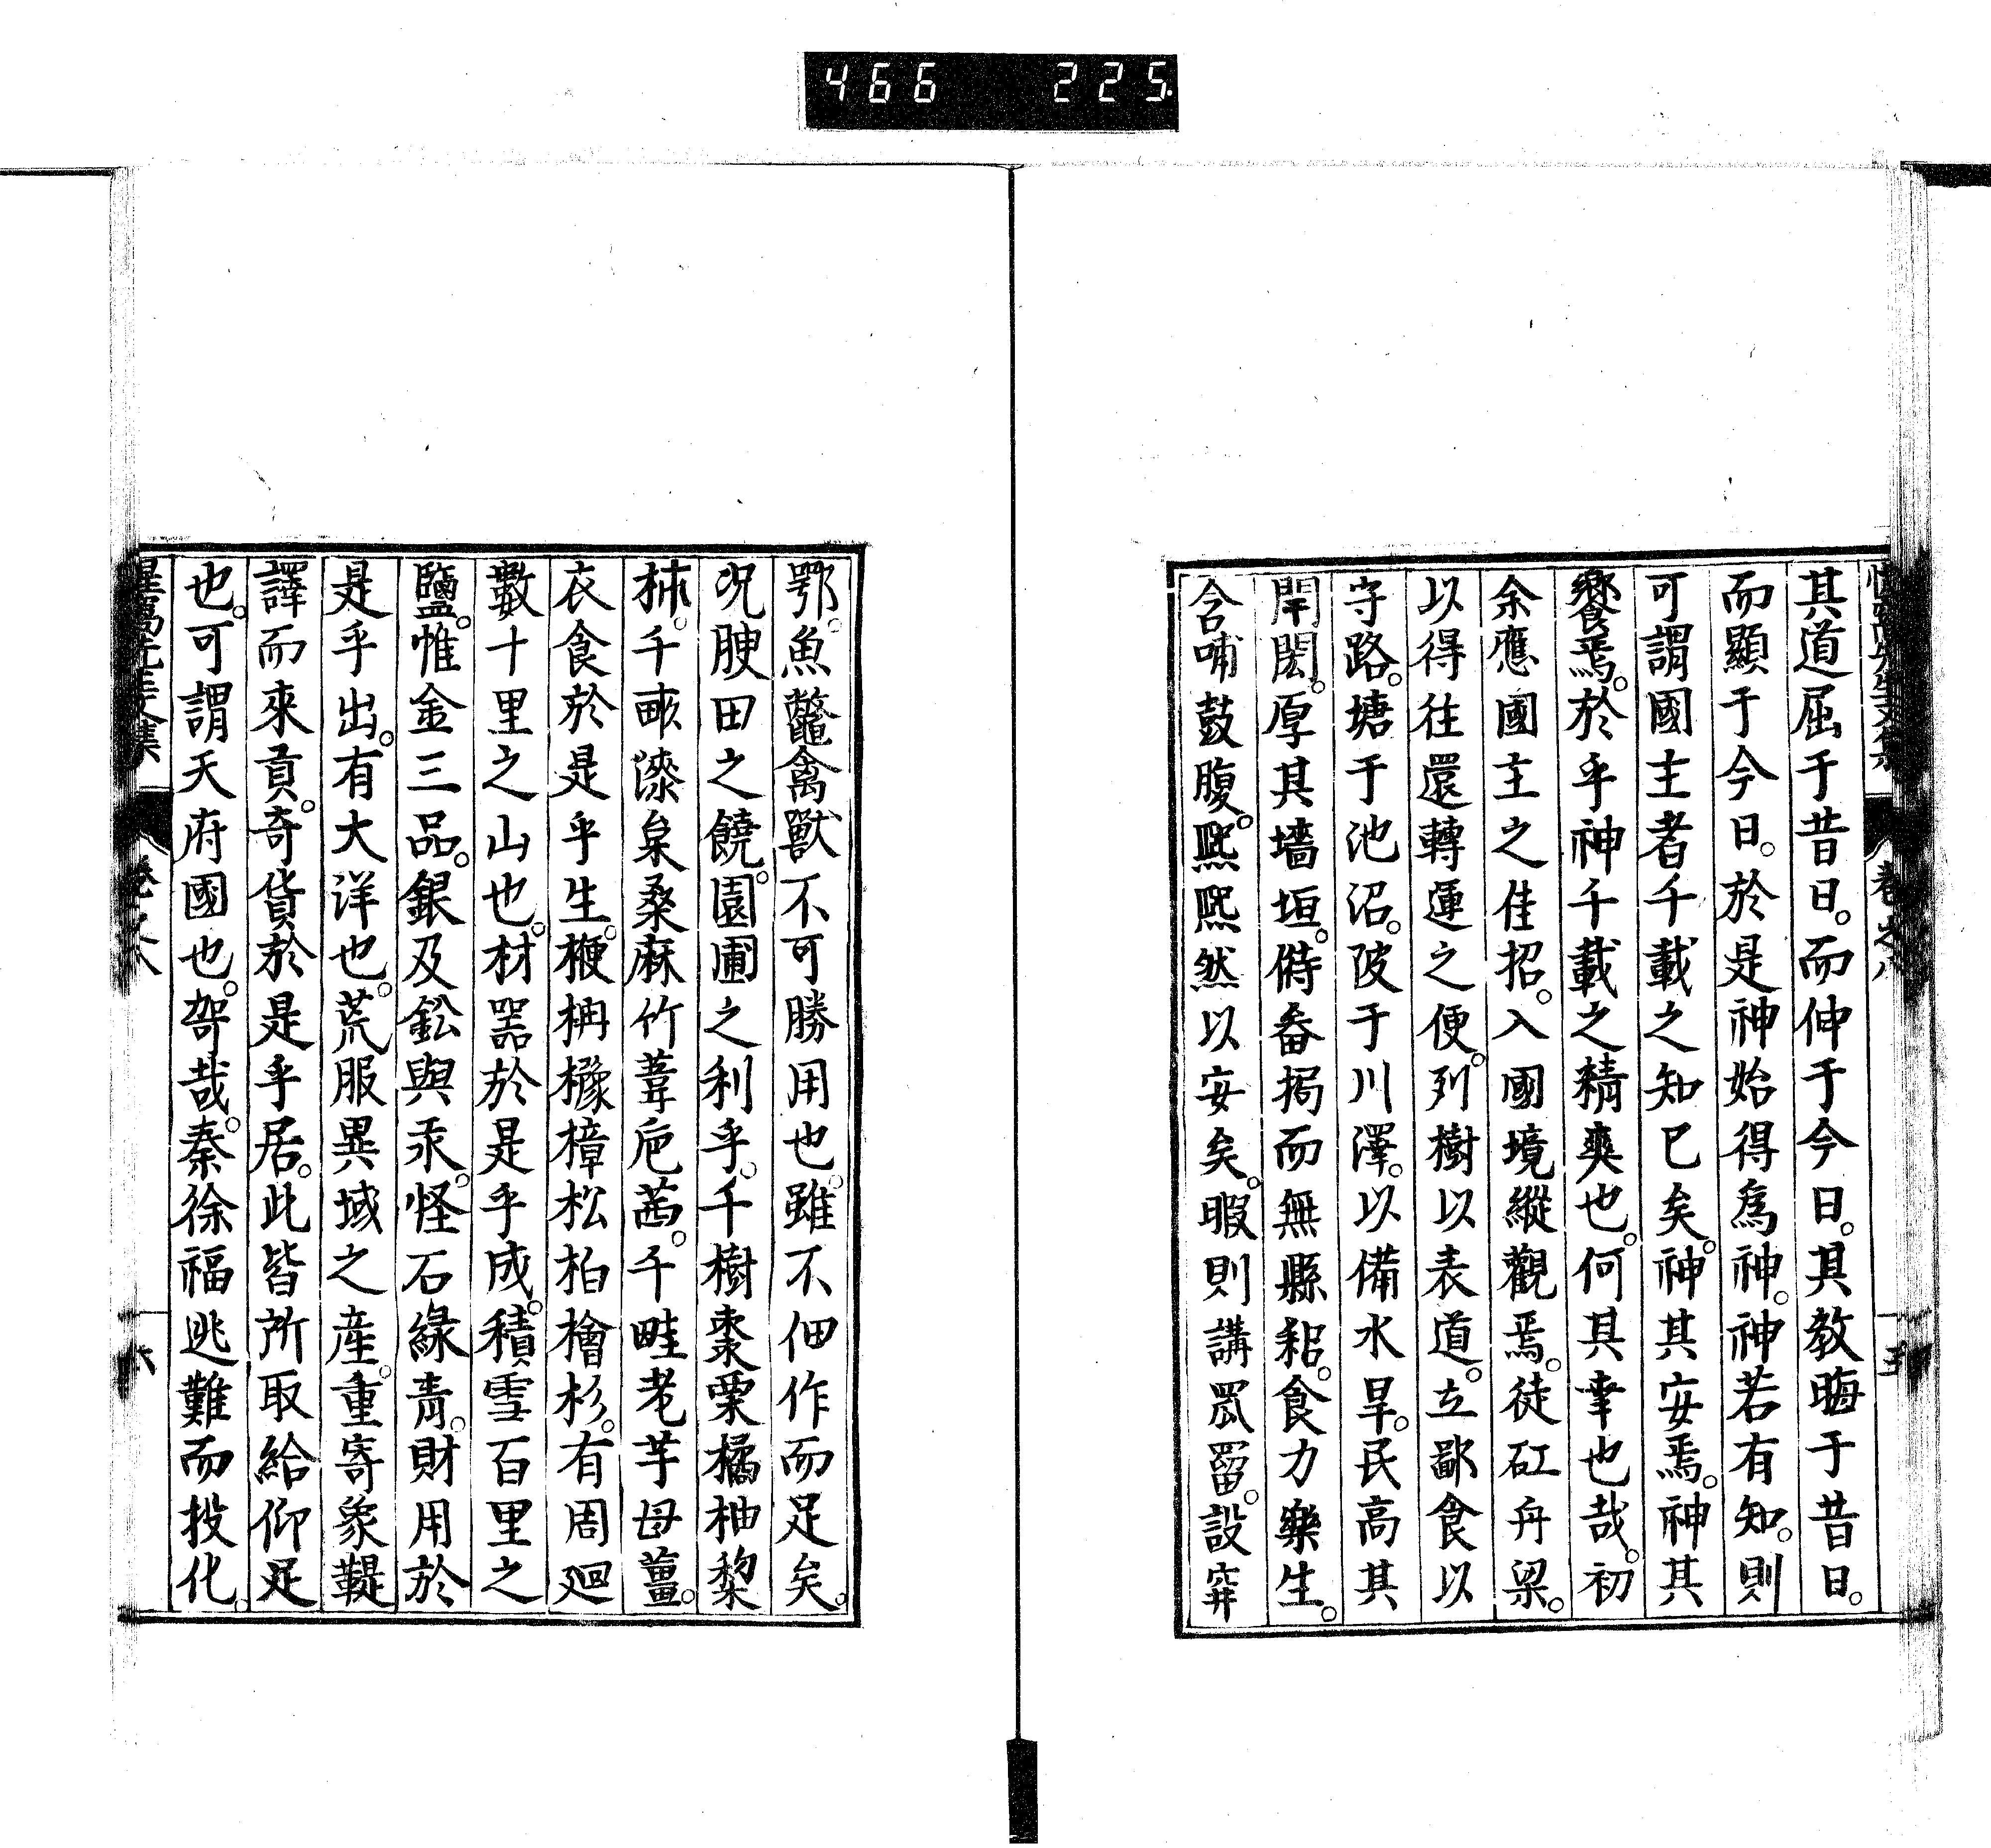 466 225
其道屈于昔日。而伸于今日。其教晦于昔日。
而顯于今日。於是神始得爲神。神若有知。則
可謂國主者千載之知已矣。神其安焉。神其
饗焉。於乎神千載之精爽也。何其幸也哉。初
余應國主之佳招。入國境縱觀焉。徒矼舟梁。
以得往還轉運之便。列樹以表道。立鄙食以
守路。塘于池沼。陂于川澤。以備水旱。民高其
閈閎。厚其墻垣。偫畚挶而無縣耜。食力樂生。
含哺鼓腹。熙熙然以安矣。暇則講罛罶。設穽
鄂。魚鼈禽獸不可勝用也。雖不佃作而足矣。
況腴田之饒。園圃之利乎。千樹棗栗橘柚黎
柹。千畞漆枲桑麻竹葦巵茜。千畦芼芋母薑。
衣食於是乎生。楩柟櫲樟松柏檜杉。有周廻
數十里之山也。材器於是乎成。積雪百里之
鹽。惟金三品。銀及鈆與汞。怪石綠青。財用於
是乎出。有大洋也。荒服異域之産。重寄象鞮
譯而來貢。奇貨於是乎居。此皆所取給仰足
也。可謂天府國也。哿哉。秦徐福逃難而投化。
先生文集 卷之八 六